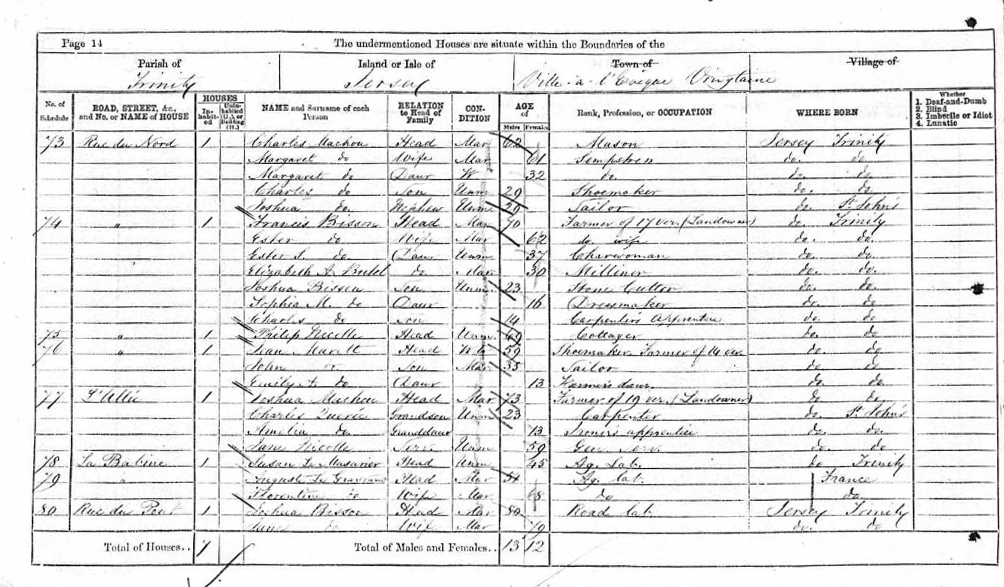 Page 14 The undermentioned Houses are situate within the Boundaries of the
Parish of Island or Isle of Town of Village of
Trinity Jersey Ville-à-l'Evêque Vingtaine
No. of Schedule ROAD, STREET, &c., and No. or NAME of HOUSE HOUSES Inhabited Uninhabited (U.), or Building (B.) NAME and Surname of each Person RELATION to Head of Family CONDITION AGE of Males Females Rank, Profession, or OCCUPATION WHERE BORN Whether 1. Deaf-and-Dumb 2. Blind 3. Imbecile or Idiot 4. Lunatic
73 Rue du Nord 1 Charles Machon Head Mar 62 Mason Jersey Trinity
Margaret do Wife Mar 61 Sempstress do. do.
Margaret do Daur W 32 do. do. do.
Charles do Son Unm 29 Shoemaker do. do.
Joshua do. Nephew Unm 29 Tailor do. St. John's
74 " 1 Francis Bisson Head Mar 70 Farmer of 17 ver. (Landowner) do. Trinity
Ester do Wife Mar 62 do wife do. do.
Ester do Daur Unm 37 Charwoman do. do.
Elizabeth A. do. Mar 30 Milliner do. do.
Joshua Bisson Son Unm 23 Stone Cutter do. do.
Sophia M. do Daur 16 Dressmaker do. do
Charles do Son 14 Carpenter's Apprentice do. do
75 " 1 Philip Head Unm 69 Cottager do. do
76 " 1 Head 59 Shoemaker. Farmer of 14 ver. do. do
John do Son Mar 35 Tailor do. do
Emily A. do Daur 13 Farmer's daur. do. do
77 1 Joshua Head Mar 73 Farmer of 19 ver. (Landowner) do. do
Charles Grandson Unm 23 Carpenter do. St. John's
Amelia do Granddaur 13 apprentice do. do.
Jane Unm 59 Gen. Serv. do. do.
78 La 1 Susan Le Head Unm 45 Ag. lab. do Trinity
79 " Auguste Head Mar 51 Ag. lab. France
Florentine do Wife Mar 68 do do
80 Rue du 1 Joshua Bisson Head Mar 80 Road lab. Jersey Trinity
Jane do Wife Mar 79 do. do.
Total of Houses.. 7 Total of Males and Females.. 13 12